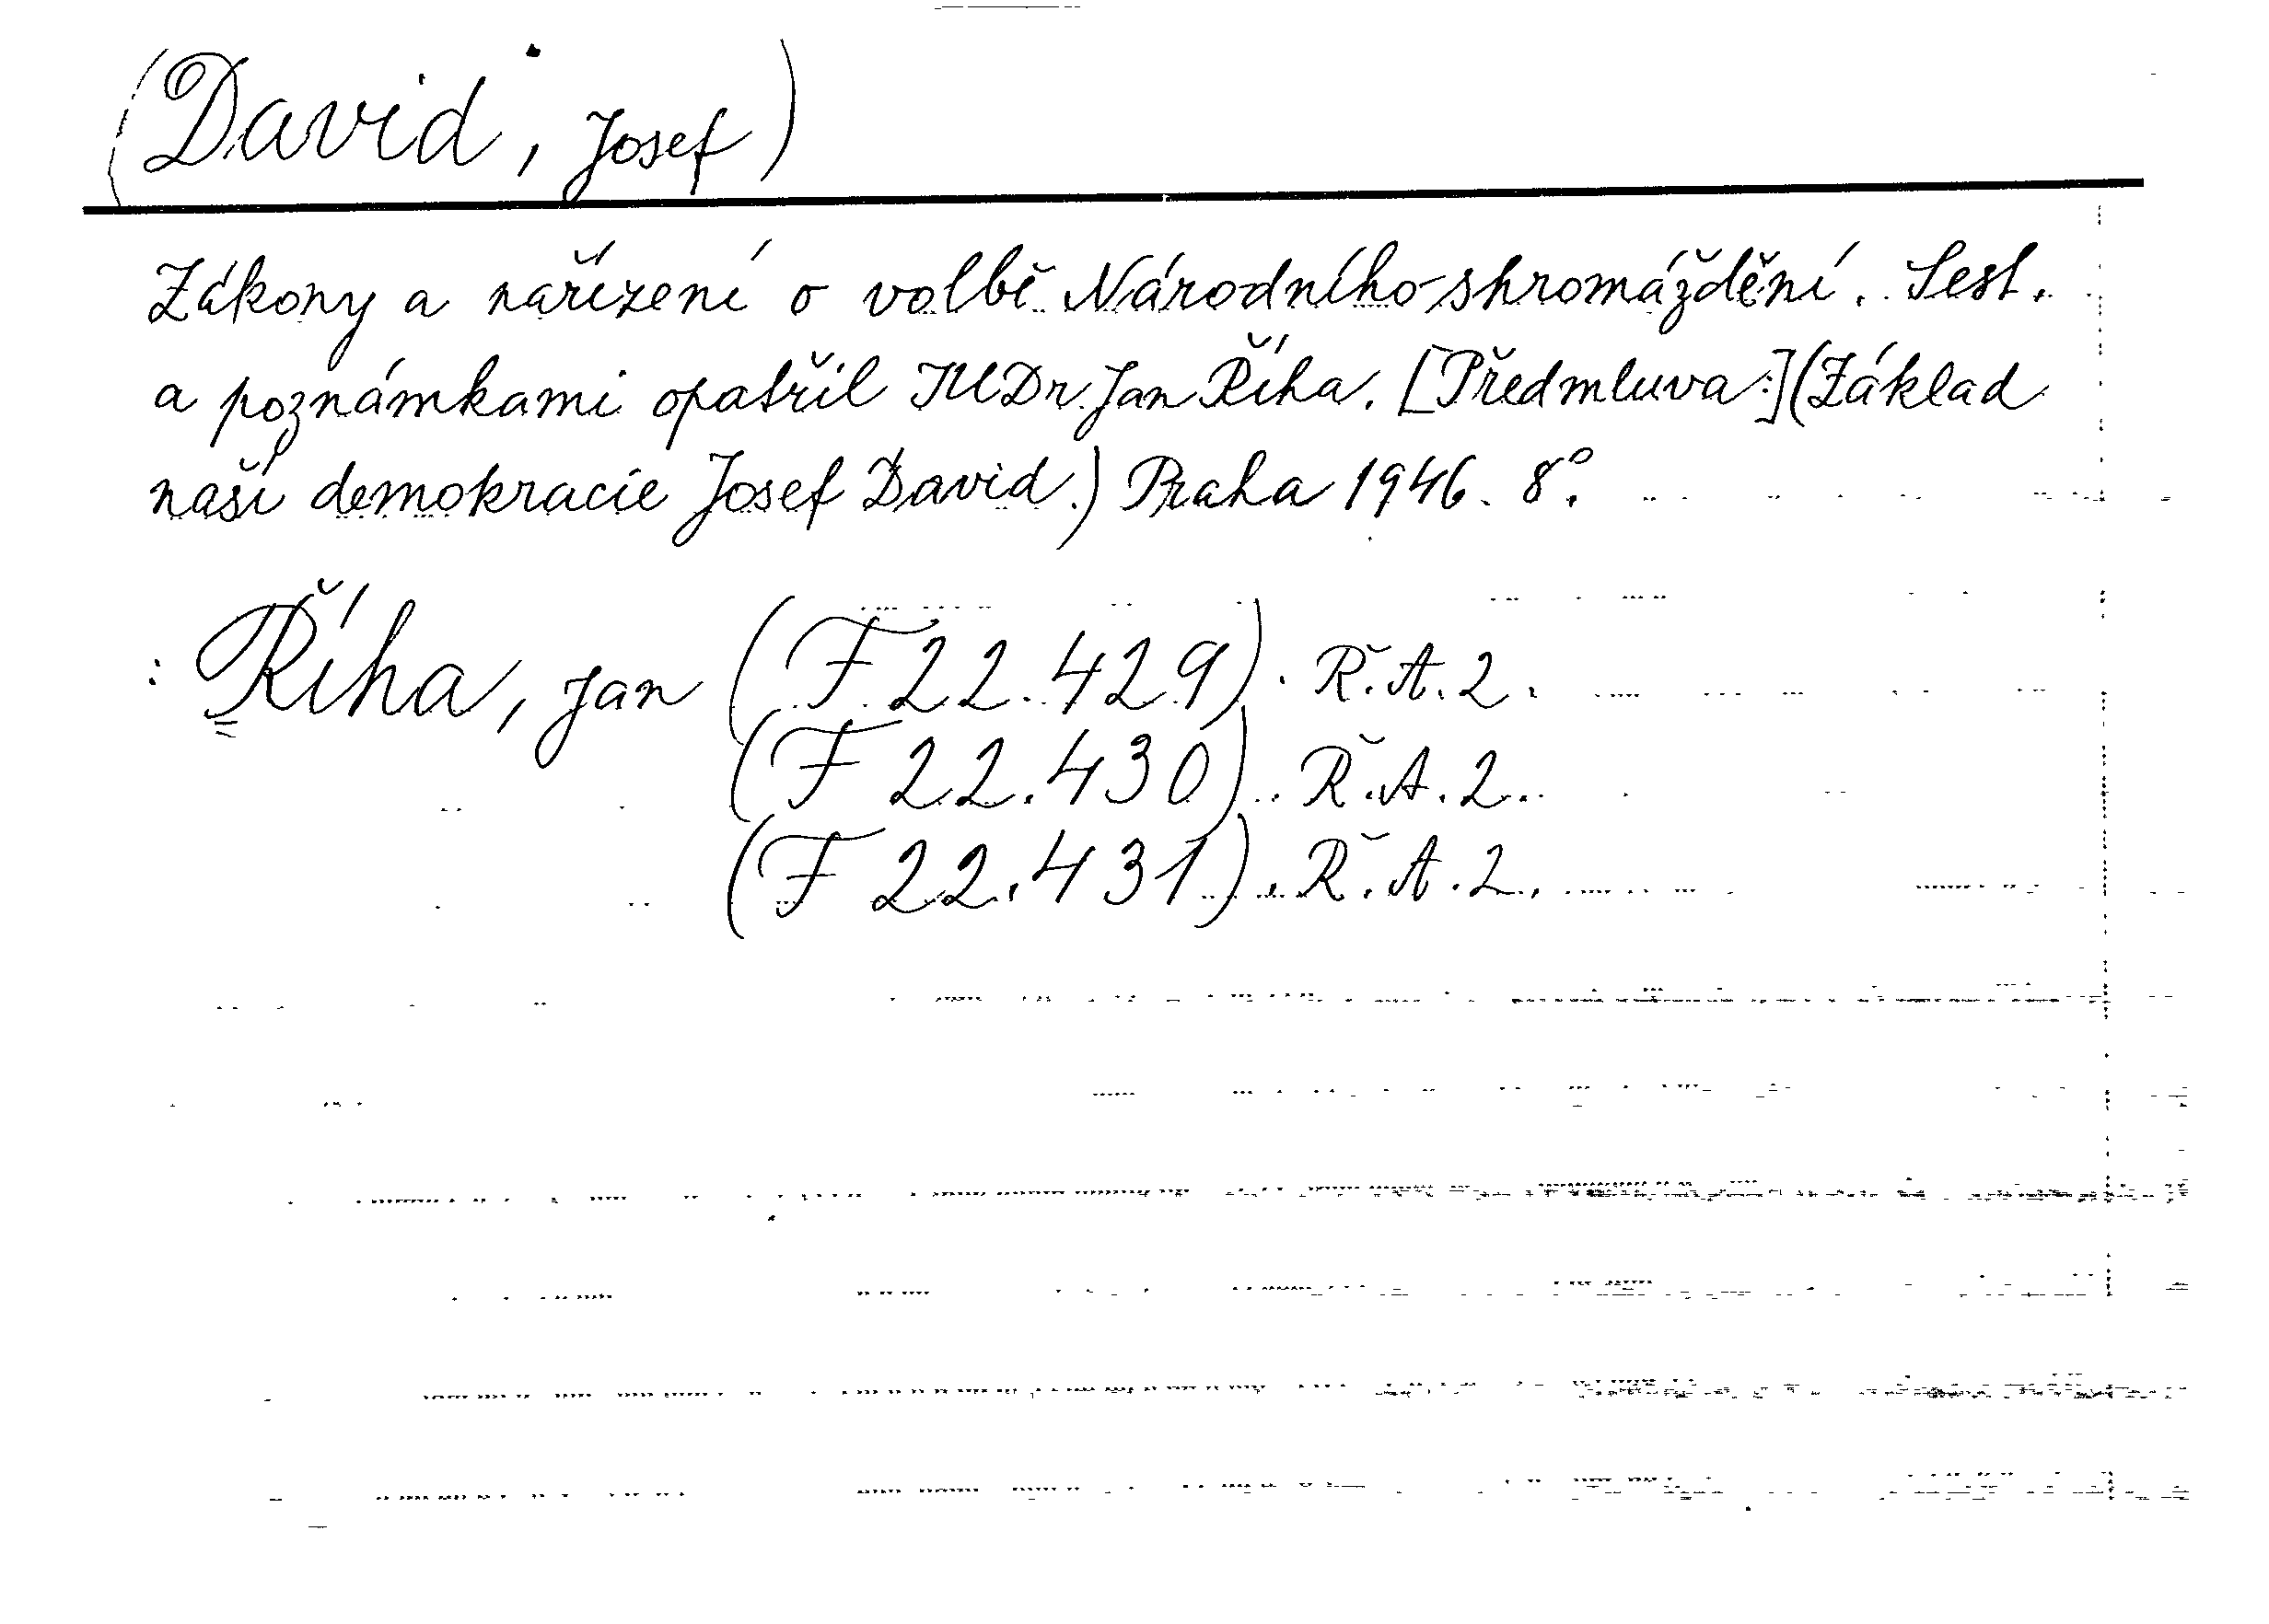 (David, Josef)
Zákony a nařízení o volbě Národního shromáždění. Sest.
a poznámkami opatřil JUDr. Jan Říha. [Předmluva:] (Základ
naší demokracie Josef David.) Praha 1946. 8°.
: Říha, Jan (F 22.429). Ř.A.2.
(F 22.430). Ř.A.2.
(F 22.431). Ř.A.2.